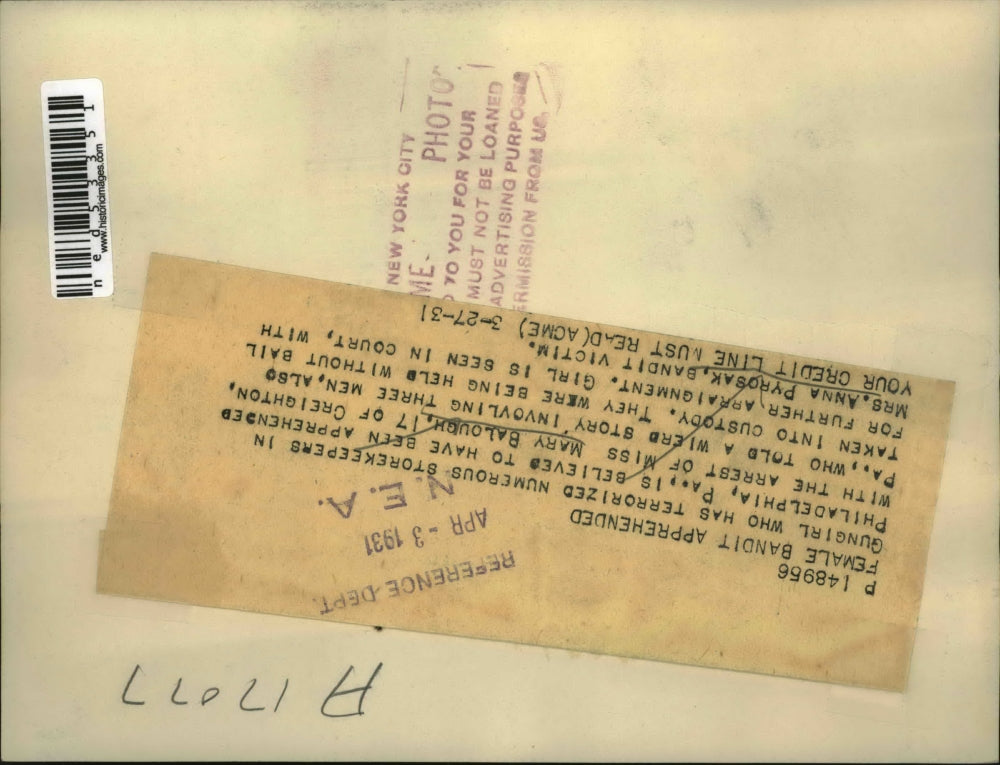 P 148956
FEMALE BANDIT APPREHENDED
GUNGIRL WHO HAS TERRORIZED NUMEROUS STOREKEEPERS IN
PHILADELPHIA, PA., IS BELIEVED TO HAVE BEEN APPREHENDED
WITH THE ARREST OF MISS MARY BALOUGH, 17, OF CREIGHTON,
PA., WHO TOLD A WIERD STORY INVOVLING THREE MEN, ALSO
TAKEN INTO CUSTODY. THEY WERE BEING HELD WITHOUT BAIL
FOR FURTHER ARRAIGNMENT. GIRL IS SEEN IN COURT, WITH
MRS. ANNA PYROSAK, BANDIT VICTIM.
YOUR CREDIT LINE MUST READ (ACME) 3-27-31
REFERENCE DEPT.
APR - 3 1931
N. E. A.
NEW YORK CITY
PHOTO
TO YOU FOR YOUR
MUST NOT BE LOANED
ADVERTISING PURPOSES
FROM US
www.historicimages.com
ned53351